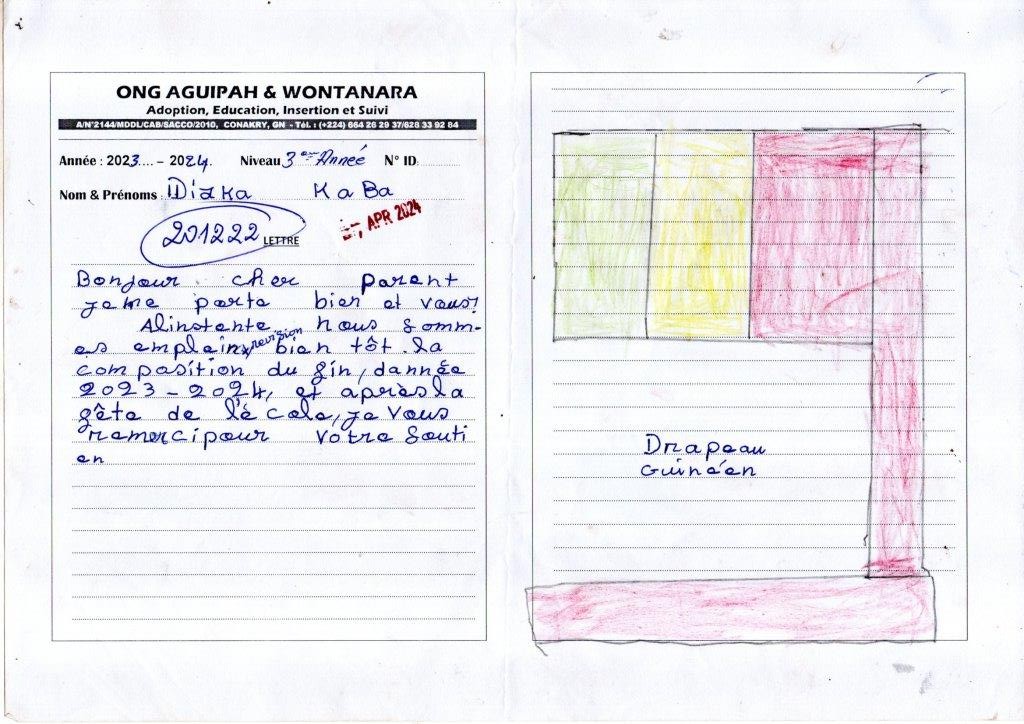 ONG AGUIPAH & WONTANARA
Adoption, Education, Insertion et Suivi
A/N°2144/MDDL/CAB/SACCO/2010, CONAKRY, GN - Tél. : (+224) 664 26 29 37/628 33 92 84
Année : 2023.... - 2024. Niveau 3ème Année N° ID
Nom & Prénoms Diaka KaBa
201222 LETTRE
APR 2024
Bonjour cher parent
je me porte bien et vous?
Alinstante nous somm-
es emplein revision bien tôt la
composition du fin, dannée
2023-2024, et après la
fête de l'é cole, je vous
remerci pour votre souti
en
Drapeau
Guinéen